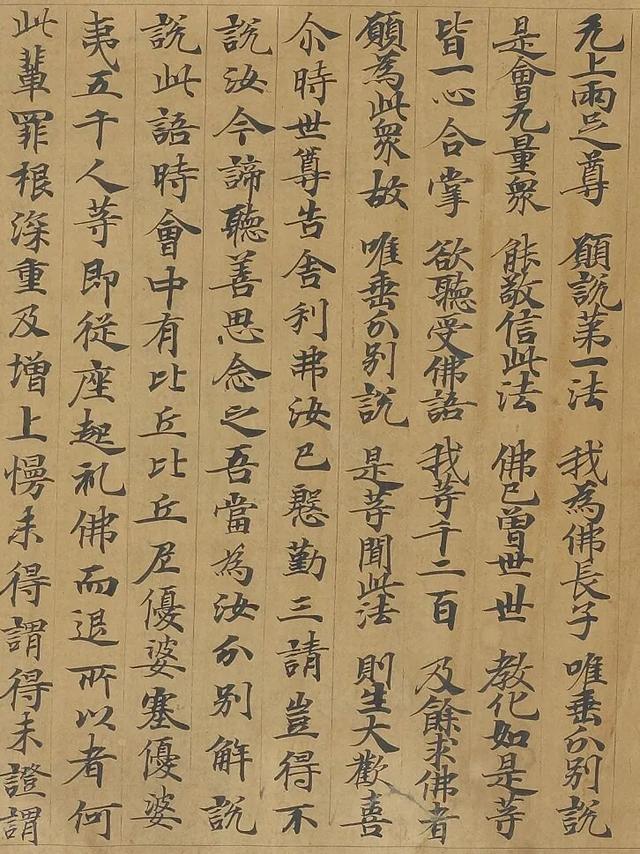 无上兩足尊 願說第一法 我為佛長子 唯垂分別說
是會无量衆 能敬信此法 佛已曾世世 教化如是等
皆一心合掌 欲聽受佛語 我等千二百 及餘求佛者
願為此衆故 唯垂分別說 是等聞此法 則生大歡喜
尒時世尊告舍利弗汝已慇勤三請豈得不
說汝今諦聽善思念之吾當為汝分別解說
說此語時會中有比丘比丘尼優婆塞優婆
夷五千人等即從座起礼佛而退所以者何
此輩罪根深重及增上慢未得謂得未證謂